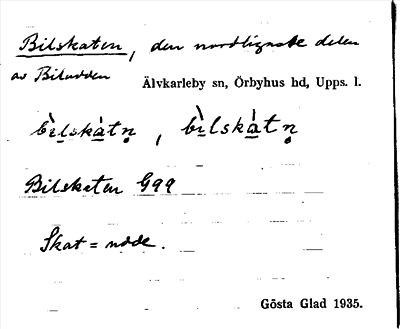 Bilskaten, den nordligaste delen
av Biludden
Älvkarleby sn, Örbyhus hd, Upps. l.
bìlskàtn̥, bìlskàtn̥
Bilskaten G99
Skat = udde.
Gösta Glad 1935.